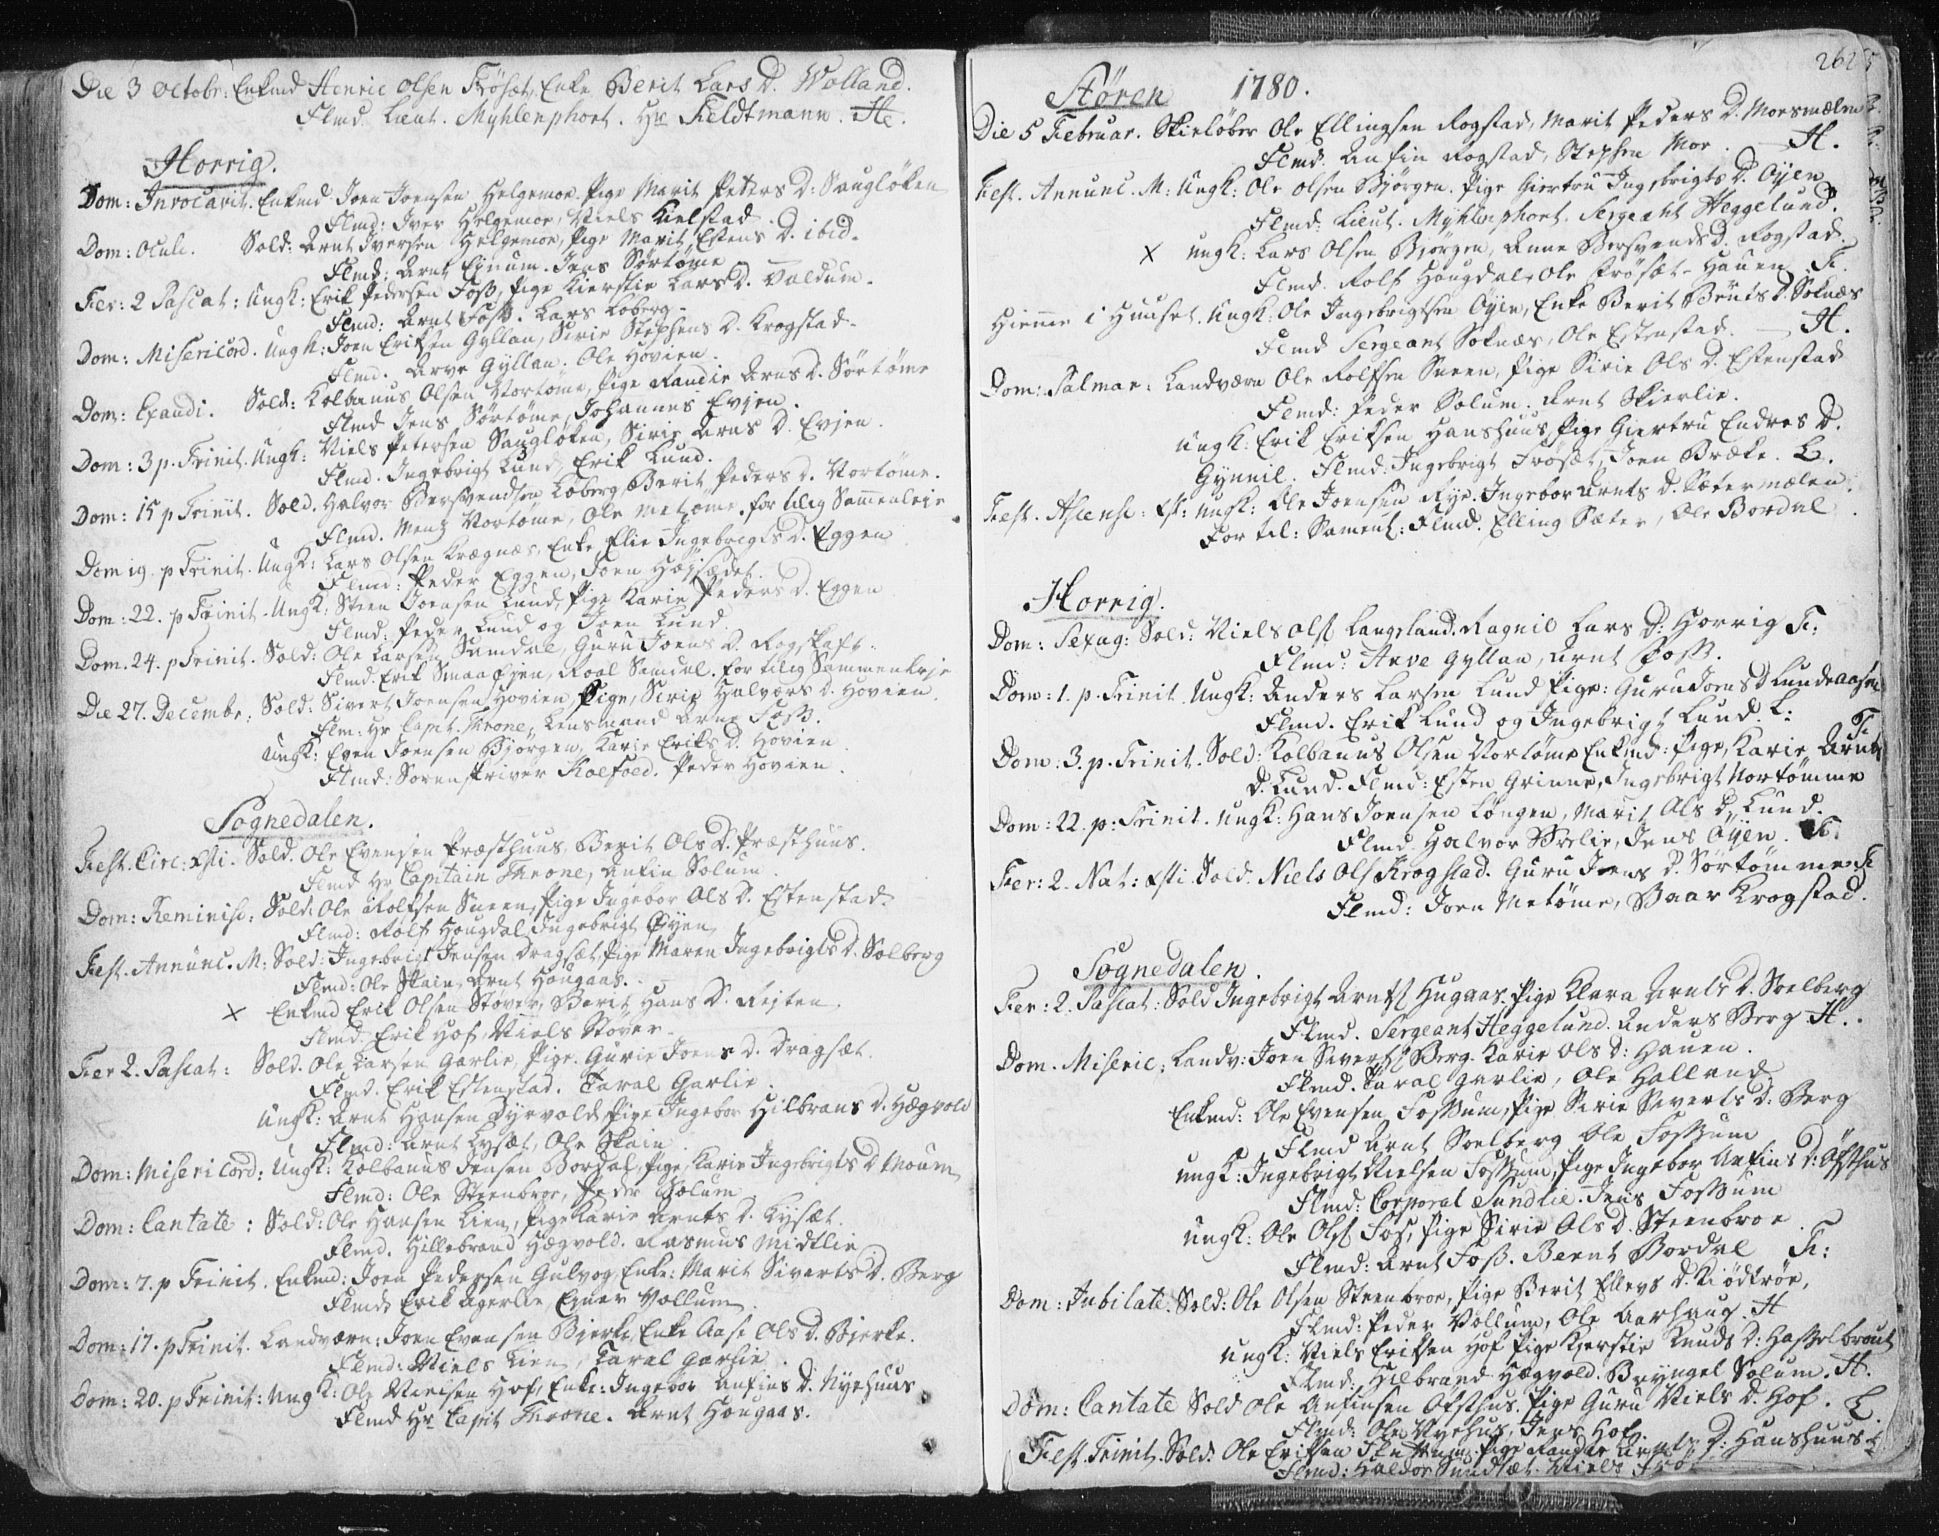 Die 3 Octobr: Enkmd Henric Olsen Frösæt, Enke Berit Lars D. Wolland.
Flmd. Lieut. Myhlenphort. Hr Feldtmann. He.
Horrig.
Dom: Invocavit. Enkmd Joen Joensen Helgemoe. Pige Marit Peters D: Saugløken
Flmd: Iver Helgemoe, Niels Kielstad
Dom: Oculi. Sold: Arnt Iversen Helgemoe, Pige Marit Estens D. ibid.
Flmd: Arnt Ejnum. Jens Sørtöme
Fer: 2 Pascat: Ungk: Erik Pedersen Foss, Pige Kierstie Lars D. Valdum.
Flmd: Arnt Foss. Lars Loberg.
Dom: Misericord. Ungk: Joen Eriksen Gyllan, Sirie Stephens D. Krogstad.
Flmd. Arve Gyllan. Ole Hovien.
Dom: Exaudi. Sold: Kolbanus Olsen Nortöme, Pige Randie Arns D. Sörtöme
Flmd Jens Sörtöme, Johannes Evjen.
Dom: 3 p. Trinit. Ungk: Niels Petersen Saugløken, Sirie Arns D. Evjen.
Flmd. Ingebrigt Lund, Erik Lund.
Dom: 15 p Trinit. Sold. Halvor Bersvendsen Loberg, Berit Peders D. Nortöme.
Flmd. Mentz Nortöme, Ole Metöme. for tilig Sammenleje
Dom 19. p Trinit. Ungk: Lars Olsen Krægnæs, Enke Elie Ingebrigts D. Eggen
Flmd: Peder Eggen, Joen Højsædet.
Dom: 22. p Trinit. Ungk: Steen Joensen Lund, Pige Karie Peders D. Eggen
Flmd: Peder Lund og Joen Lund.
Dom. 24. p Trinit. Sold: Ole Larsen Samdal, Guru Joens D. Rogstad.
Flmd. Erik Smaaejen, Roal Samdal. for tilig Sammenleje
Die 27. Decembr: Sold: Sivert Joensen Hovien Pige, Sirie Halvors D. Hovien.
Flm: Hr Capit. Throne, Lensmand Arne Foss.
Ungk: Even Joensen Bjorgen, Karie Eriks D. Hovien
Flmd: Sorenskriver Koefoed. Peder Hovien.
Sognedalen.
Fest. Circ: Xsti. Sold. Ole Evensen Præsthuus Berit Ols D. Præsthuus.
Flmd Hr Capitain Throne, Anfin Solum.
Dom: Reminisc: Sold. Ole Rolfsen Sneen, Pige Ingebor Ols D. Estenstad.
Flmd: Rolf Hougdal Ingebrigt Öyen,
Fest. Annunc. M: Sold: Ingebrigt Jensen Dragsæt, Pige Maren Ingebrigts D. Solberg
Flmd: Ole Skain, Arnt Hougaas.
x Enkmd Erik Olsen Stöver, Berit Hans D. Rejten.
Flmd. Erik Hof, Niels Stöver.
Fer 2. Pascat: Sold. Ole Larsen Garlie, Pige. Gurie Joens D. Dragsæt.
Flmd. Erik Estenstad. Taral Garlie.
Ungk: Arnt Hansen Fyrvold, Pige Ingebor Hilbrans D. Hægvold
Flmd: Arnt Lysæt, Ole Skain.
Dom: Misericord: Ungk: Kolbanus Jensen Bordal, Pige, Karie Ingebrigts D. Moum
Flmd: Ole Steenbroe, Peder Solum
Dom: Cantate: Sold: Ole Hansen Lien, Pige Karie Arnts D. Lysæt.
Flmd. Hillebrand Hægvold. Rasmus Midtlie
Dom: 7. p Trinit. Enkmd: Joen Pedersen Gulvog, Enke: Marit Siverts D. Berg
Flmd: Erik Agerlie Ejner Vollum
Dom: 17. p Trinit. Landværn: Joen Evensen Bjerke, Enke Aase Ols D. Bjerke.
Flmd: Niels Lien, Taral Garlie.
Dom: 20. p Trinit: Ungk: Ole Nielsen Hof, Enke: Ingebor Anfins D. Nyehuus
Flmd Hr Capit Throne. Arnt Hougaas.
262
Stören 1780.
Die 5 Februar. Skieløber Ole Ellingsen Rogstad, Marit Peders D. Moesmælen
Flmd. Anfin Rogstad, Stephen Moe. H.
Fest. Annunc. M: Ungk: Ole Olsen Björgen. Pige Giertru Ingebrigts D. Öyen
Flmd: Lieut. Myhlenphort. Sergeant Heggelund.
x Ungk: Lars Olsen Bjørgen, Anne Bersvends D. Rogstad.
Flmd. Rolf Hougdal, Ole Frösæt-Hauen Fr.
Hiemme i Huuset. Ungk: Ole Ingebrigtsen Öyen, Enke Berit Bents D. Soknæs
Flmd Sergeant Soknæs, Ole Estenstad. H.
Dom: Palmar: Landværn Ole Rolfsen Sneen, Pige Sirie Ols D. Estenstad
Flmd: Peder Solum. Arnt Skierlie.
Ungk: Erik Eriksen Hanshuus, Pige Giertru Endres D.
Gynnil. Flmd: Ingebrigt Frösæt, Joen Bræke. L.
Fest. Ascens: Xst: Ungk: Ole Joensen Rye. Ingebor Arnts D. Sætermælen.
For til: Sament: Flmd. Elling Sæter, Ole Bordal.
Horrig.
Dom: Sexag: Sold: Niels Ols Langeland. Ragnil Lars D: Horrig Fr:
Flmd: Arve Gyllan, Arnt Foss.
Dom: 1. p. Trinit. Ungk: Anders Larsen Lund Pige: Guru Joens D Lundeaasen
Flmd. Erik Lund og Ingebrigt Lund. L:
Dom: 3. p. Trinit. Sold: Kolbanus Olsen Nortöme Enkmd: Pige, Karie Arnts
D. Lund. Flmd: Esten Grinne, Ingebrigt Nortömme
Dom: 22. p: Trinit. Ungk: Hans Joensen Löngen, Marit Ols D. Lund.
Flmd. Halvor Brelie, Jens Öyen. Fr.
Fer: 2. Nat: Xsti Sold. Niels Ols Krogstad. Guru Jens D. Sörtömme Fr
Flmd: Joen Metöme, Baar Krogstad.
Sognedalen.
Fer: 2. Pascat: Sold Ingebrigt Arnts Hugaas. Pige Klara Arnts D. Soelberg
Flmd. Sergeant Heggelund. Anders Berg H.
Dom. Miseric: Landv: Joen Siverts Berg. Karie Ols D: Hauen.
Flmd. Taral Garlie, Ole Halland
Enkmd: Ole Evensen Fossum, Pige Sirie Siverts D: Berg
Flmd Arnt Soelberg Ole Fossum
Ungk: Ingebrigt Nielsen Fossum, Pige Ingebor Anfins D: Öfsthus
Flmd: Corporal Sundlie. Jens Fossum
Ungk: Ole Ols Fos, Pige Sirie Ols D. Steenbroe.
Flmd: Arnt Foss. Bernt Bordal Fr:
Dom: Jubilate. Sold: Ole Olsen Steenbroe, Pige Berit Ellevs D. Kiödtröe,
Flmd: Peder Vollum, Ole Aarhaug. H
Ungk: Niels Eriksen Hof Pige Kjerstie Knuds D: Hasselbrout
Flmd: Hilbrand Hægvold. Bryngel Solum. H.
Dom: Cantate Sold Ole Anfinsen Öfsthus. Pige Guru Niels D. Hof. L.
Flmd: Ole Nyehus, Jens Hof.
Fest. Trinit. Sold: Ole Eriksen Pige Randie Arnts D: Hanshuus
Flmd: Haldor Sundsæt. Niels